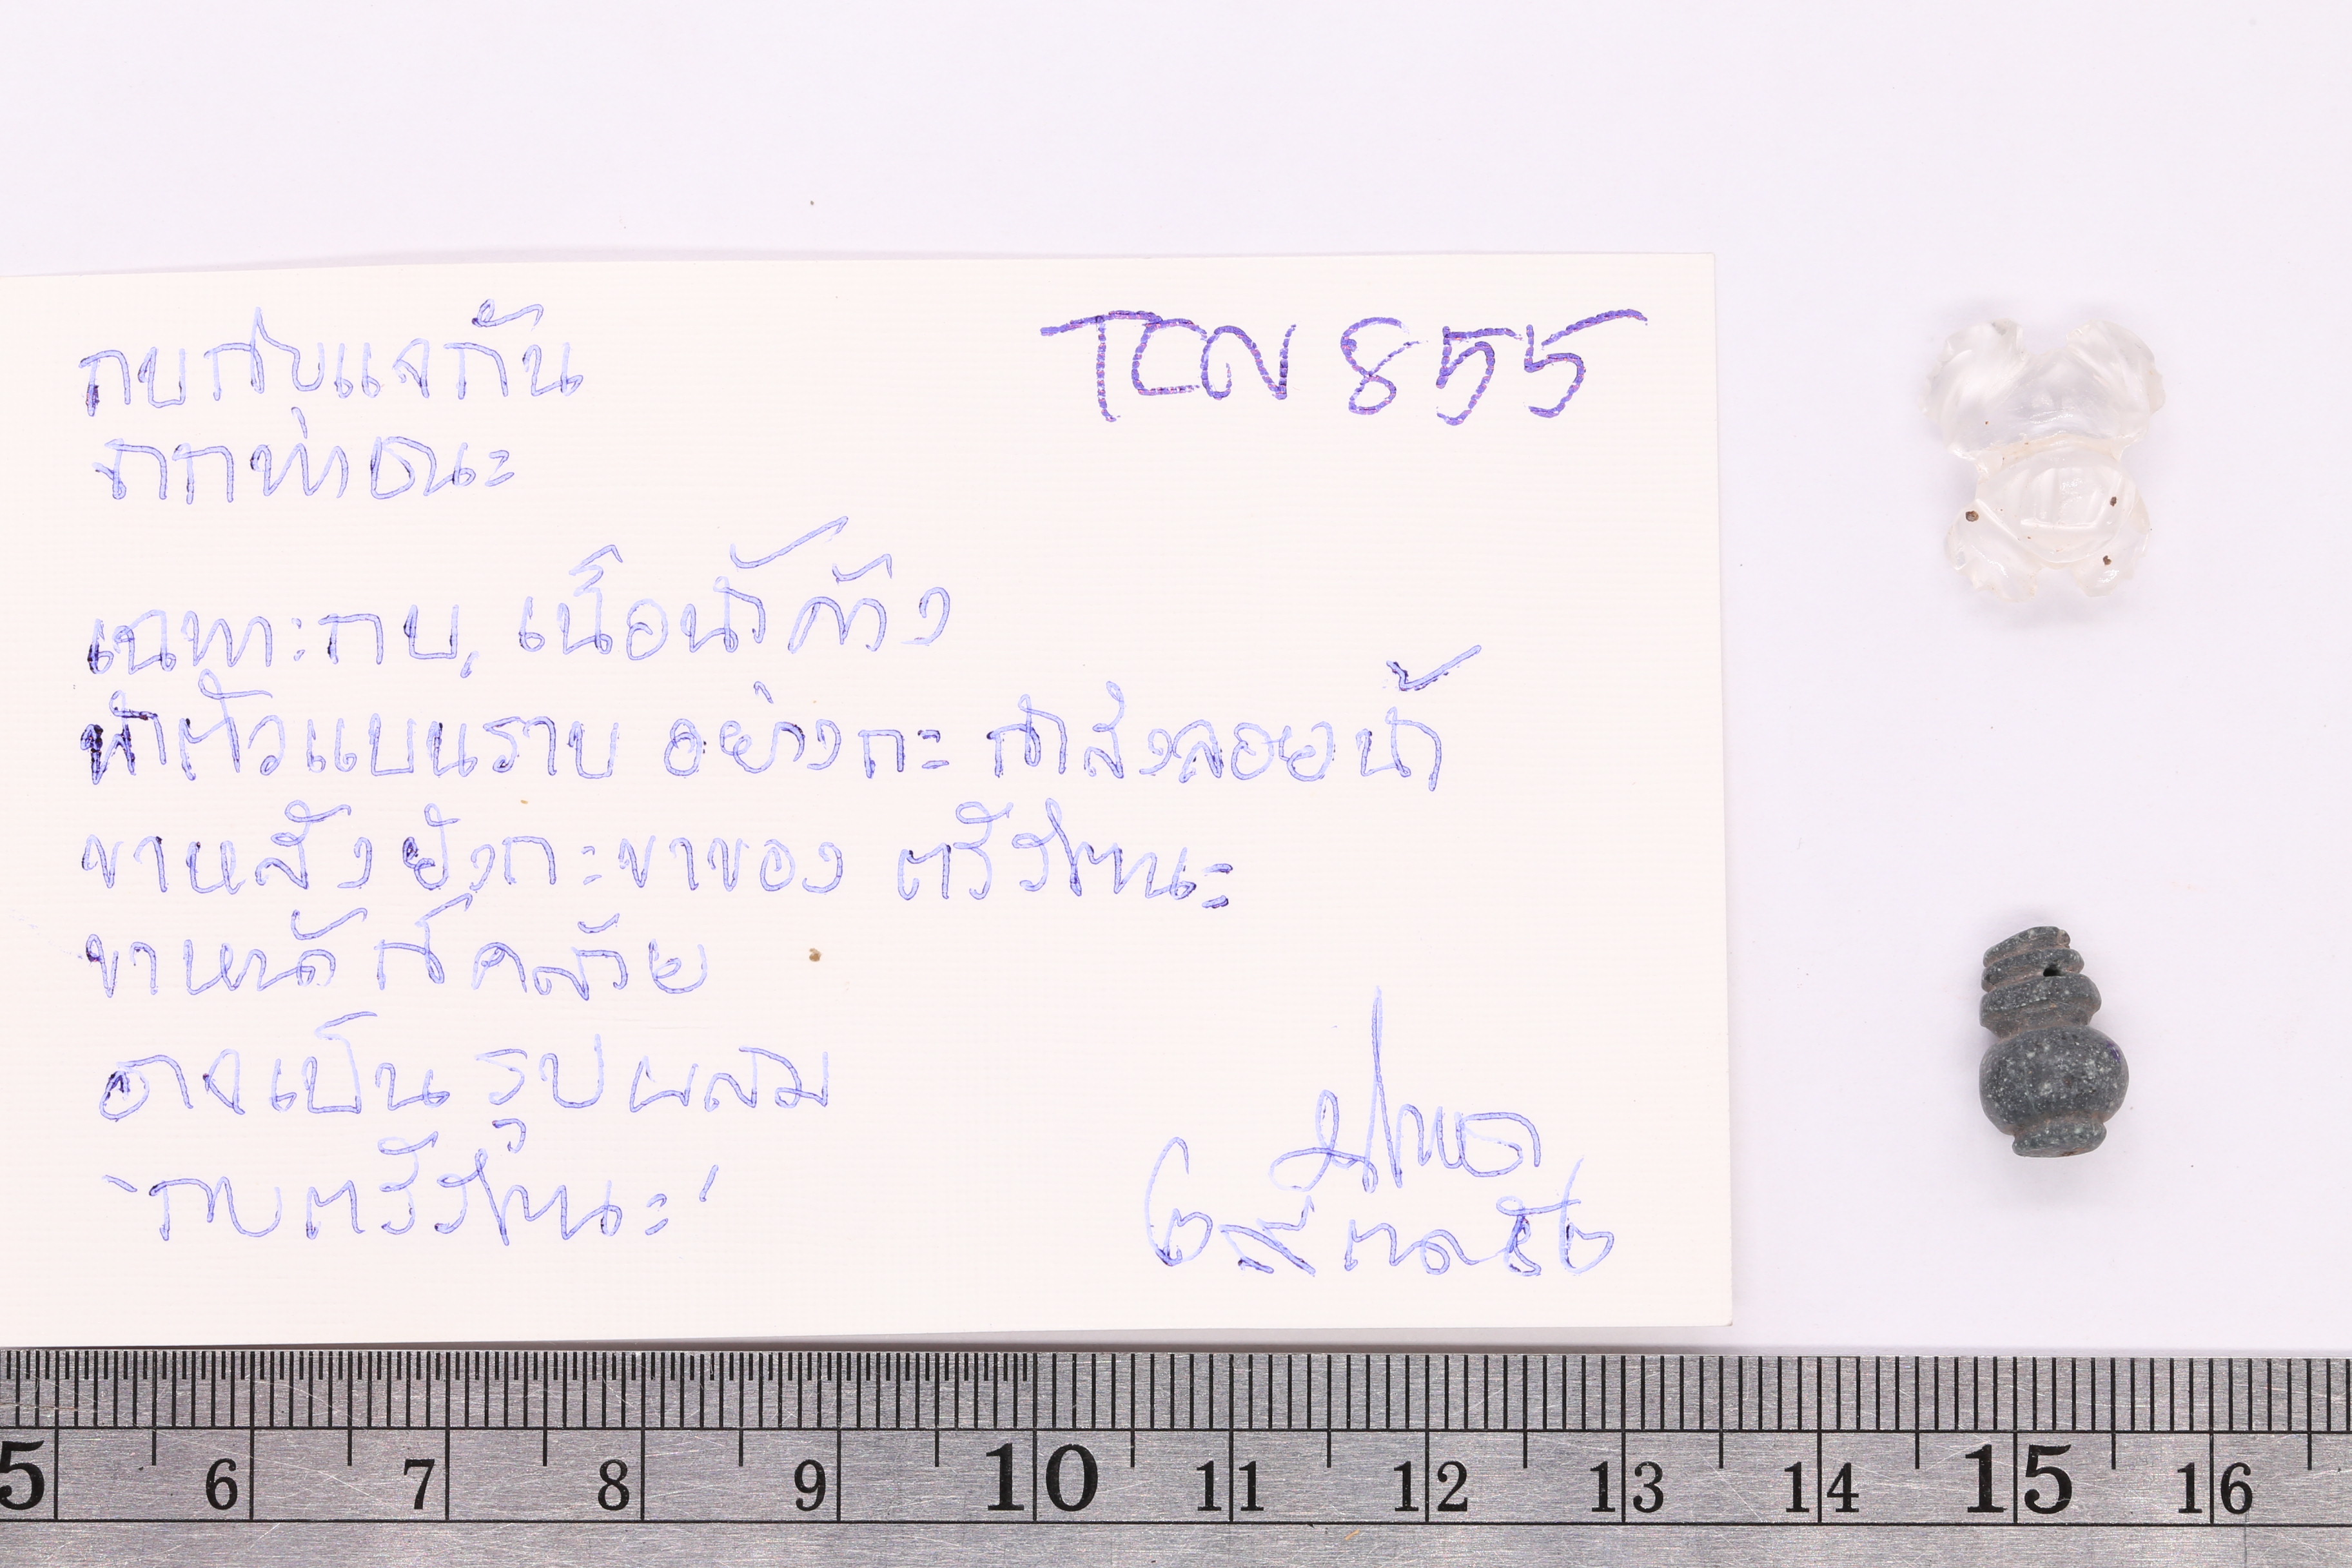 TCN 855
กบกับแจกัน
จากท่าชนะ
เฉพาะกบ, เนื้อน้ำค้าง
ทำตัวแบนราบ อย่างกะ กำลังลอยน้ำ
ขาหลัง ยังกะขาของ ตรีรัตนะ
ขาหน้า ก็คล้าย
อาจเป็น รูปผสม
'กบตรีรัตนะ'
5 6 7 8 9 10 11 12 13 14 15 16